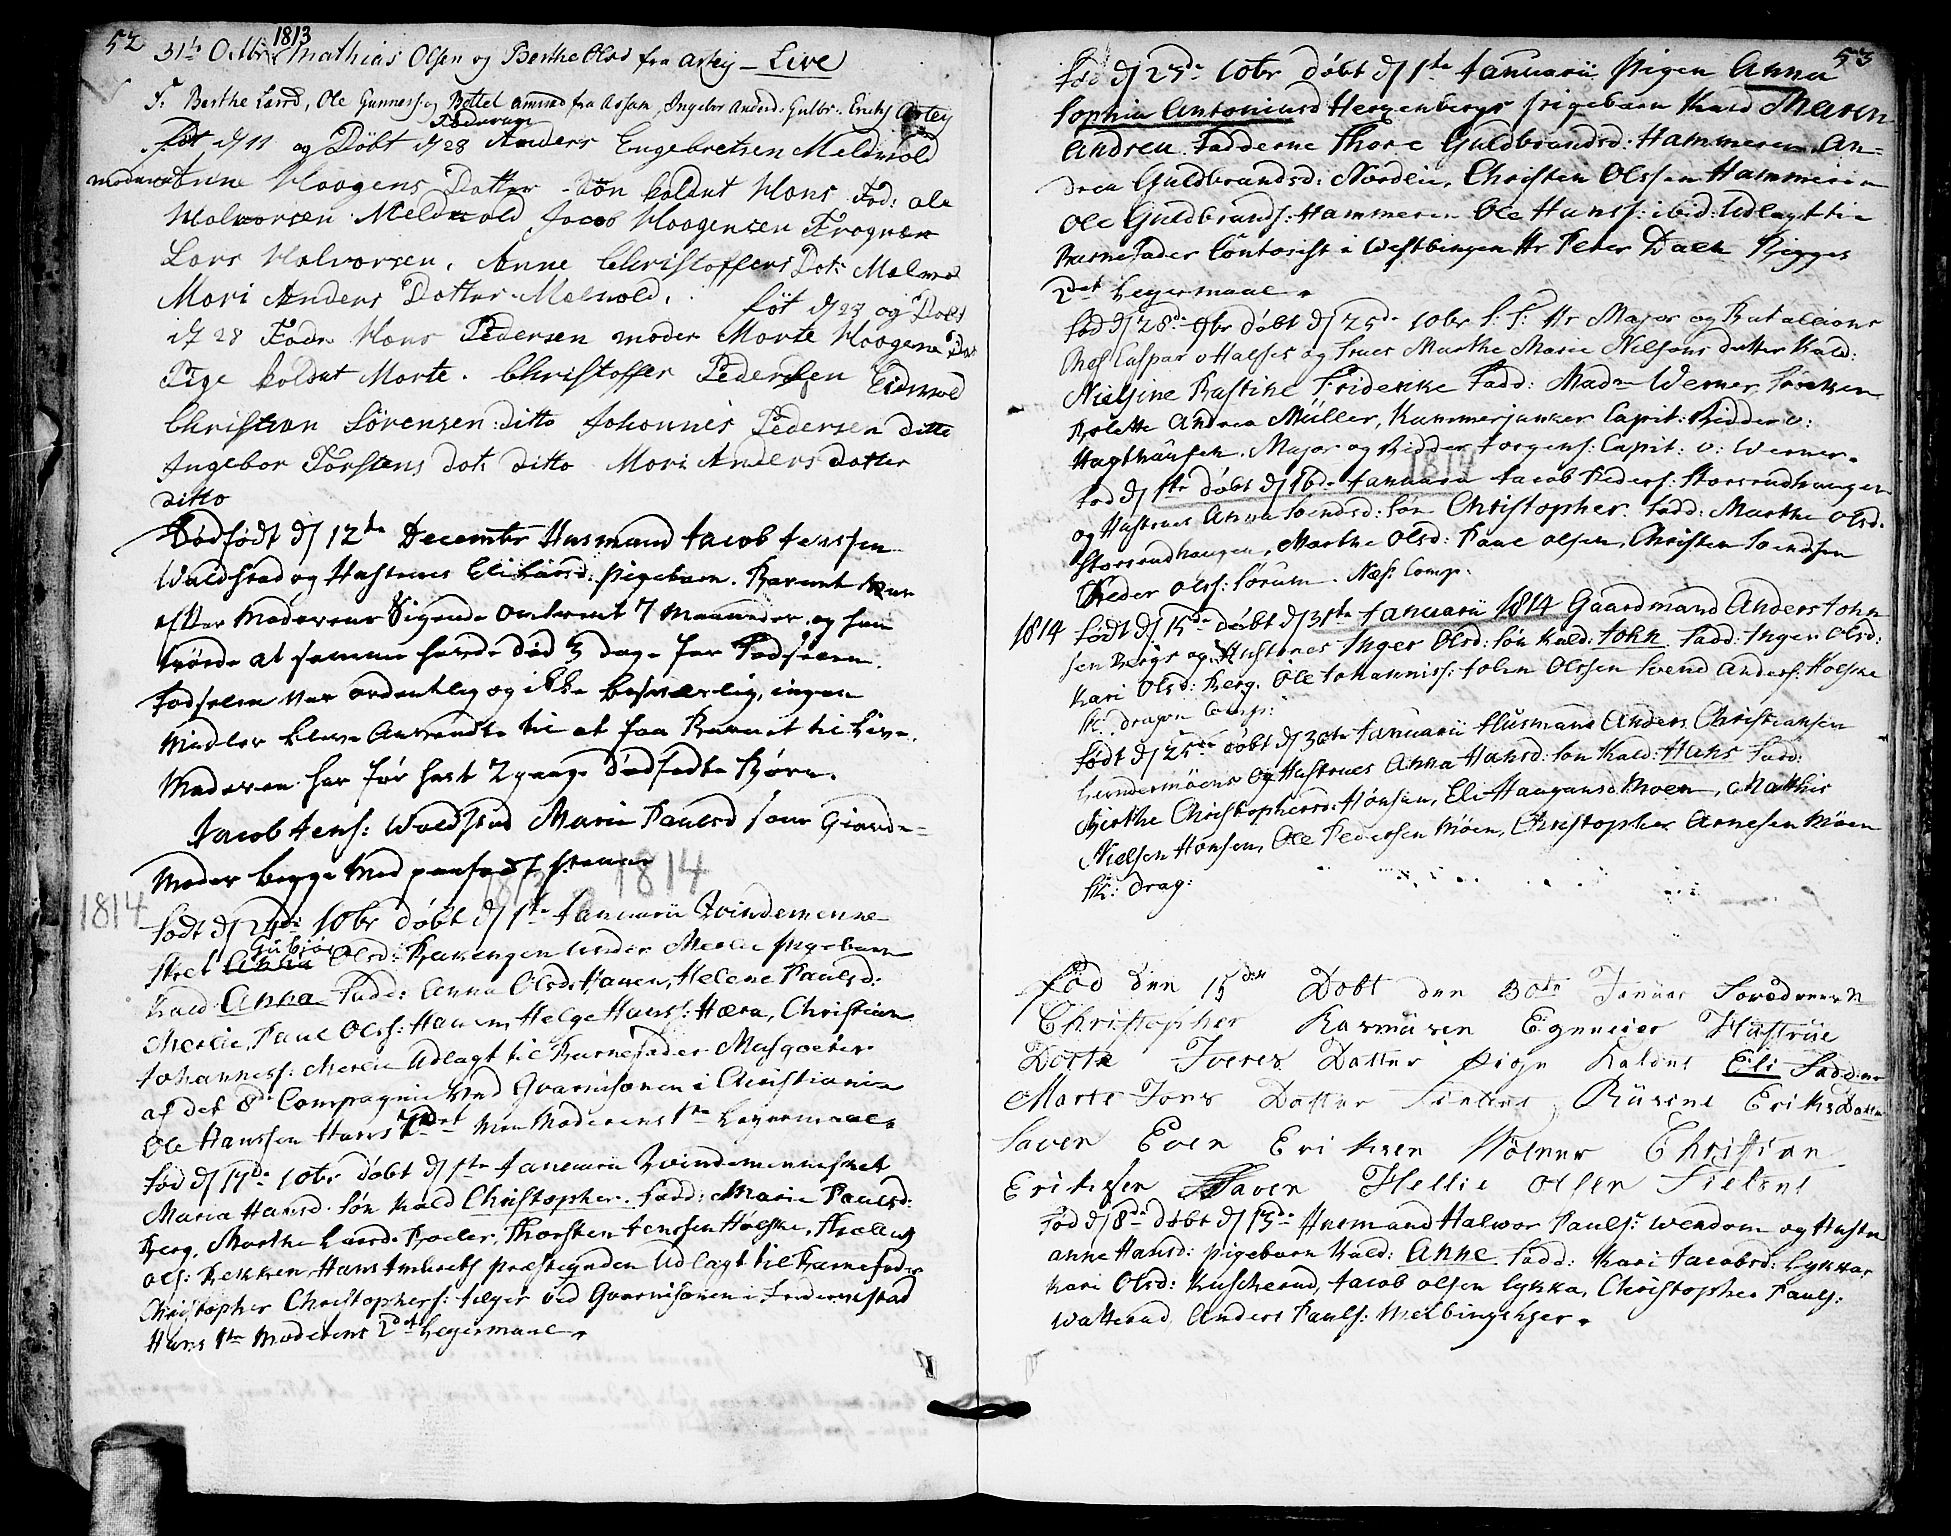 52
1813
31te Octbr Mathias Olsen og Berthe Olsd fra Arley — Live
F: Berthe Larsd, Ole Gunners: og Bottel Amund fra Assam, Ingebor Andersd: Gulbr: Erichs Arley
Faderen
föt d/ 11 og Döbt d/ 28 Anders Engebretsen Meldvold
moderen Anne Haagens Datter Sön kaldut Hans Fad: ole
Halvorsen Meldvold Jacob Haagensen Frogner
Lars Halvorsen, Anne Christoffers Dot: Melvold
Mari Anders Dotter Melvold. föt d/ 23 og Döbt
d/ 28 Fader Hans Pedersen moder Marte Haagens Dat
Pige koldut Marte. Christoffer Pedersen Eidsvold
Christian Sörensen ditto Johannes Pedersen ditto
Ingebor Torstens dot: ditto Mari Anders dotter
ditto
Dödfödt d/ 12te December Husmand Jacob Jenssen
Waldstad og Hustrues Eli Larsd: pigebarn. Barnet var
efter Moderens Sigende omtrent 7 Maaneder, og hun
troede at samme havde död 3 dage før Fødselen.
Födselen var ordentlig og ikke besværlig, ingen
Midler bleve anvendte til at faa Barnet til Live.
Moderen har før havt 2 gange dödfødte Børn.
Jacob Jens: Waldstad Marie Paulsd som Giorde-
Moder begge med paaholden Penn
1813 1814
1814
födt d/ 24de 10br döbt d/ 1te Januarii Qvindemenne-
Gubiör
sket Anna Olsd: Bakengen under Merlie pigebarn
Kald: Anna Fadd: Anna Olsd: Hauen, Helene Paulsd:
Merlie, Paul Olss: Hauen, Helge Hans: Hæra, Christian
Johanness: Merlie Udlagt til Barnefader Musqueter
af det 8de Compagnie ved Qvarnisonen i Christiania
Ole Hanssen Hans 2det Men Moderens 1te Leyermaal.
föd d/ 17de 10br döbt d/ 1te Januarii Qvindemennisket
Maria Hansd: sön Kald Christopher. Fadd: Marie Paulsd:
Berg, Marthe Larsd: Roeler, Thorsten Jenssen Holske,
Ols: Bekken, Hans Præstegaarden Udlagt til Barnefader
Christopher Christophers: Jæger ved Qvarnisonen i Friderichstad
Hans 1te Moderens 2det Leyermaal.
53
föd d/ 25de 10br döbt d/ 1te Januarii, Pigen Anna
Sophia Antoniusd Hergenbergs pigebarn Kald Maren
Andrea. Fadderne Thore Guldbrandsd: Hammeren, An-
drea Guldbrandsd: Nordlie, Christen Olssen Hammeren
Ole Guldbrands: Hammeren Ole Hanss: ibid: Udlagt til
Barnefader Contorist i Westbingen Hr Peter Dahl Begges
2det Leyermaal.
föd d/ 28de 9br döbt d/ 25de 10br S: T: Hr Major og Batallions
Chef Caspar v Halses og Frues Marthe Marie Nilsons datter Kald:
Nielsine Bastine Friderikke Fadd: Madm Werner,
Bolette Andrea Müller, Kammerjunker Capit: Ridder v:
Hagthausen, Major og Ridder Jörgens: Capit: v: Werner.
1814
föd d/ 1te döbt d/ 16de Januarii Jacob Peders: Storrudhaugen
og Hustrues Anna Svendsd: sön Christopher. Fadd: Marthe Olsd.
Storrudhaugen, Marthe Olsd: Paul Olsen, Christen Svendsen
Peder Olss: Sörum. Næs: Comp.
1814 födt d/ 15de döbt d/ 31te Januarii 1814 Gaardmand Anders John
sen Bergs og Hustrues Inger Olsd: sön Kald: John Fadd: Inger Olsd:
Kari Olsd: Berg, Ole Johanniss: John Olssen Svend Anders: Holske
Sk: dragon Comp:
födt d/ 25de döbt d/ 30te Januarii Husmand Anders Christiansen
Lundermöens og Hustrues Anna Hansd: sön Kald: Hans Fadd:
Birthe Christophersd: Honsen, Eli Haagensd Moen, Mathis
Nielsen Honsen, Ole Pedersen Moen, Christopher Arnesen Moen
Sk: drag:
föd den 15den Dobt den 30te Januar Soredneren
Christopher Rasmusen Egnneier Hustrue
Dorte Iveres Datter pige Kaldet Eli Faddere
Marte Jons Datter Rüsene Eriks Datter
Saven Even Eriksen Nolner Christian
Eriksen Saven Hellie Olsen
föd d/ 8de döbt d/ 13de Husmand Halvor Pauls: Wendom og Hustru
Anne Hansd: pigebarn Kald: Anne Fadd: Kari Jacobsd: Lykkas
Kari Olsd: Kuskerud, Jacob Olsen Lykka, Christopher Pauls:
Watterud, Anders Pauls: Melbinghser.